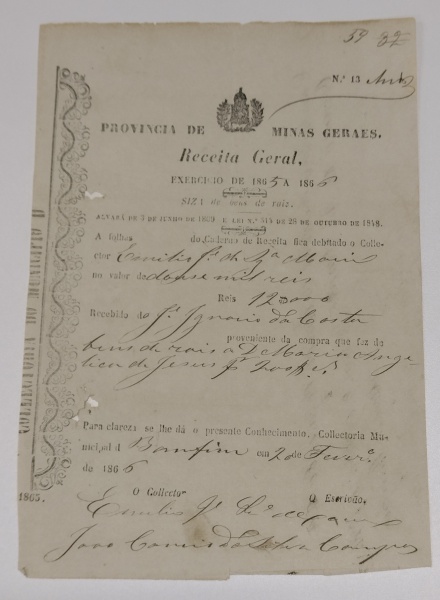 59 82
N.º 13
PROVINCIA DE MINAS GERAES.
Receita Geral,
EXERCICIO DE 1865 A 1866
SIZA de bens de raiz.
ALVARÁ DE 3 DE JUNHO DE 1809 E LEI N.º 514 DE 28 DE OUTUBRO DE 1848.
A folhas do Caderno de Receita fica debitado o Colle-
ctor Emilio
no valor de douse mil reis
Reis 12$000
Recebido do J.º Ignacio da Costa
proveniente da compra que fez de
bens de rais a D Maria Ange-
lica de Jesus
Para clareza se lhe dá o presente Conhecimento. Collectoria Mu-
nicipal d Bomfim em 20 de Fevr.º
de 1866
O Collector O Escrivão,
Emilio
João da Silva Campos
COLLECTORIA DO MUNICIPIO D
1865.